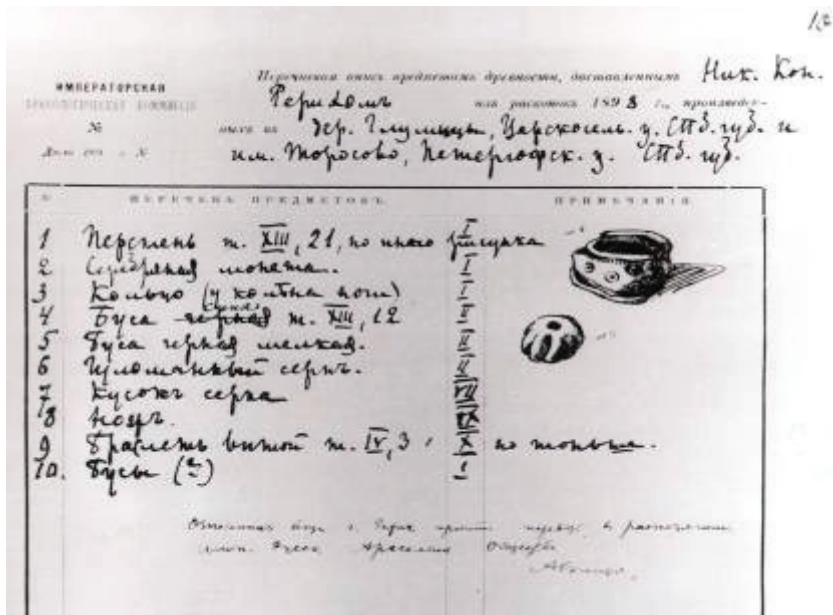 12
ИМПЕРАТОРСКАЯ
АРХЕОЛОГИЧЕСКАЯ КОММИССІЯ
№
Перечневая опись предметамъ древности, доставленнымъ Ник. Кон.
Рерихомъ изъ раскопокъ 1898 г., произведен-
ныхъ въ дер. Глумицы, Царскосель. у. СПб. губ. и
им. Торосово, Петергофск. у. СПб. губ.
№ ПЕРЕЧЕНЬ ПРЕДМЕТОВЪ. ПРИМѢЧАНІЯ.
1 Перстень т. XIII, 21, но иного рисунка I
2 Серебряная монета. I
3 Кольцо (у колѣна ноги) I
4 Буса т. XIII, 12 II
5 Буса черная мелкая. II
6 Изломанный серпъ. II
7 Кусокъ серпа VII
8 Ножъ.
9 Браслетъ витой т. IV, 3 X но тоньше.
10. Бусы (2)
г. просит в распоряжение
Общества